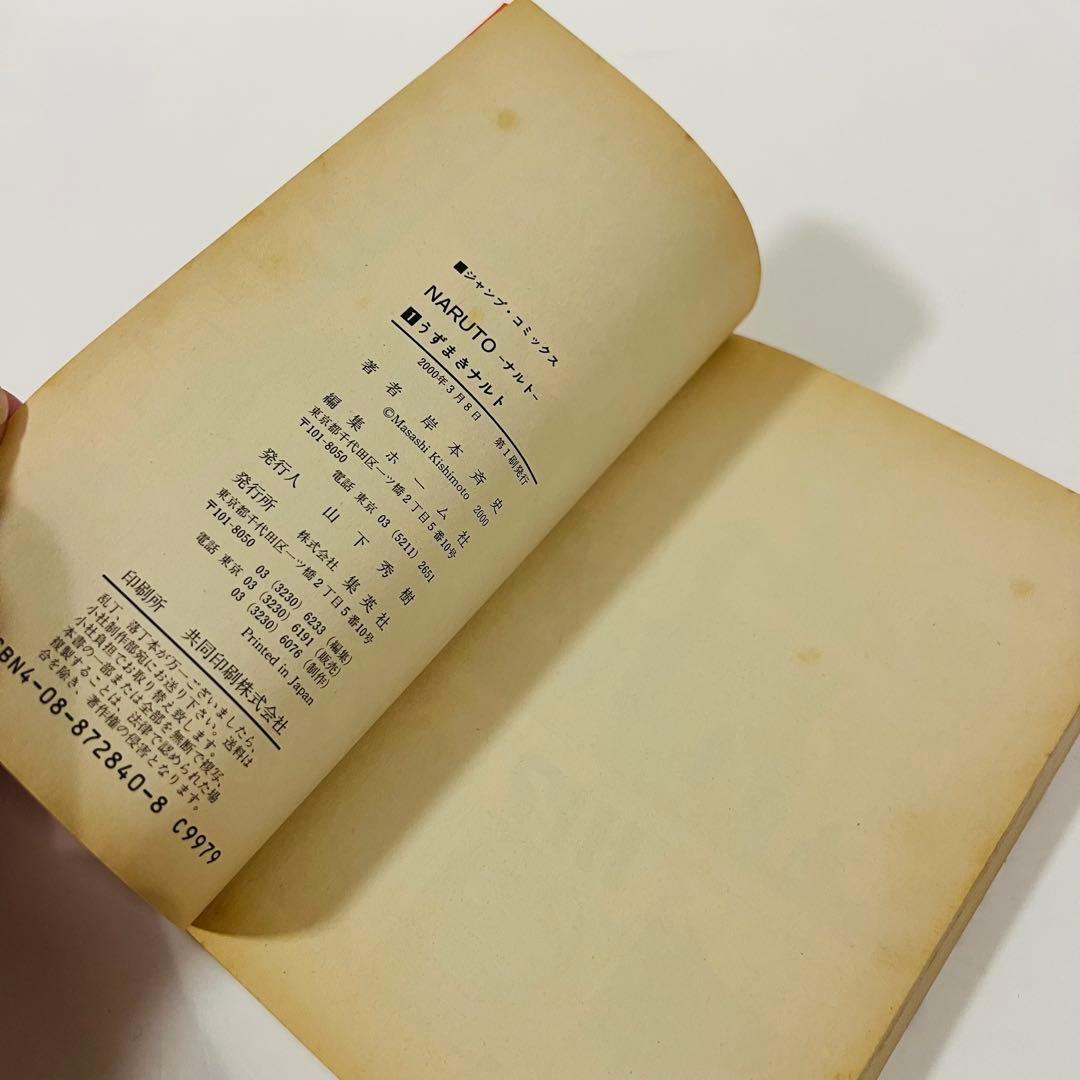 ■ジャンプ・コミックス
NARUTO -ナルト-
1 うずまきナルト
2000年3月8日 第1刷発行
著者 岸本斉史
©Masashi Kishimoto 2000
編集 ホーム社
東京都千代田区一ツ橋2丁目5番10号
〒101-8050 電話 東京 03 (5211) 2651
発行人 山下秀樹
発行所 株式会社 集英社
東京都千代田区一ツ橋2丁目5番10号
〒101-8050
03 (3230) 6233 (編集)
電話 東京 03 (3230) 6191 (販売)
03 (3230) 6076 (制作)
Printed in Japan
印刷所 共同印刷株式会社
乱丁、落丁本が万一ございましたら、
小社制作部宛にお送り下さい。送料は
小社負担でお取り替え致します。
本書の一部または全部を無断で複写、
複製することは、法律で認められた場
合を除き、著作権の侵害となります。
ISBN4-08-872840-8 C9979